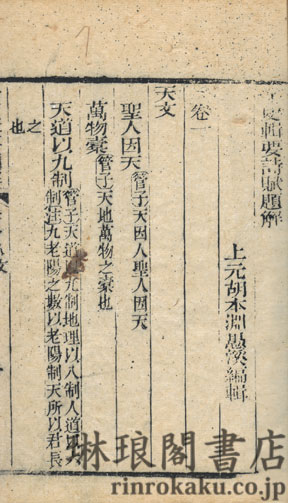 輯要詩賦題解
上元胡本淵愚溪編輯
卷一
天文
聖人因天管子天因人聖人因天
萬物橐管子天地萬物之橐也
天道以九制管子天道以九制地理以八制人道以六
制注九老陽之數以老陽制天所以君長
之
也
林琅閣書店
rinrokaku.co.jp